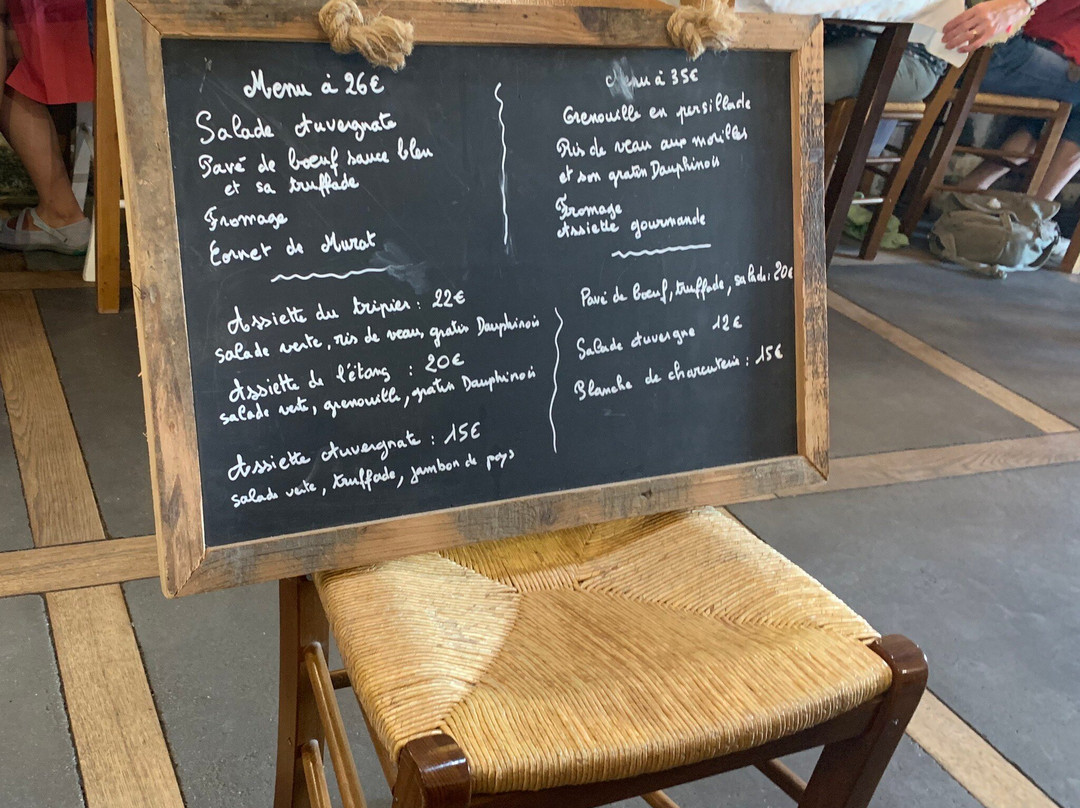 Menu à 26€
Salade Auvergnate
Pavé de bœuf sauce bleu
et sa truffade
Fromage
Cornet de Murat
Menu à 35€
Grenouille en persillade
Ris de veau aux morilles
et son gratin Dauphinois
Fromage
Assiette gourmande
Assiette du tripier : 22€
salade verte, ris de veau, gratin Dauphinois
Assiette de l'étang : 20€
salade verte, grenouille, gratin Dauphinois
Assiette Auvergnate : 15€
salade verte, truffade, jambon de pays
Pavé de bœuf, truffade, salade : 20€
Salade Auvergne 12€
Planche de charcuterie : 15€